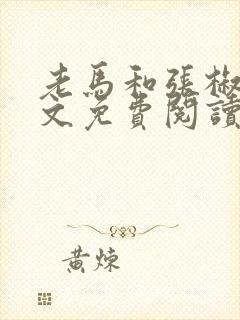 老馬和張椒
文免費閱讀
黃煉